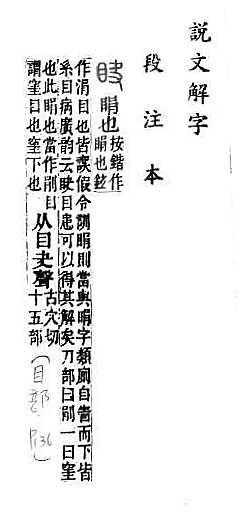 説文解字
段注本
䀗
睊也
按鍇作
睊也鉉
作涓目也皆誤假令訓睊則當與睊字類廁自眚而下皆
系目病廣韵云䀗目患可以得其解矣刀部曰剈一曰窐
也此睊也當作剈目
謂窐目也窐下也
从目夬聲
古穴切
十五部
(目部 P136)